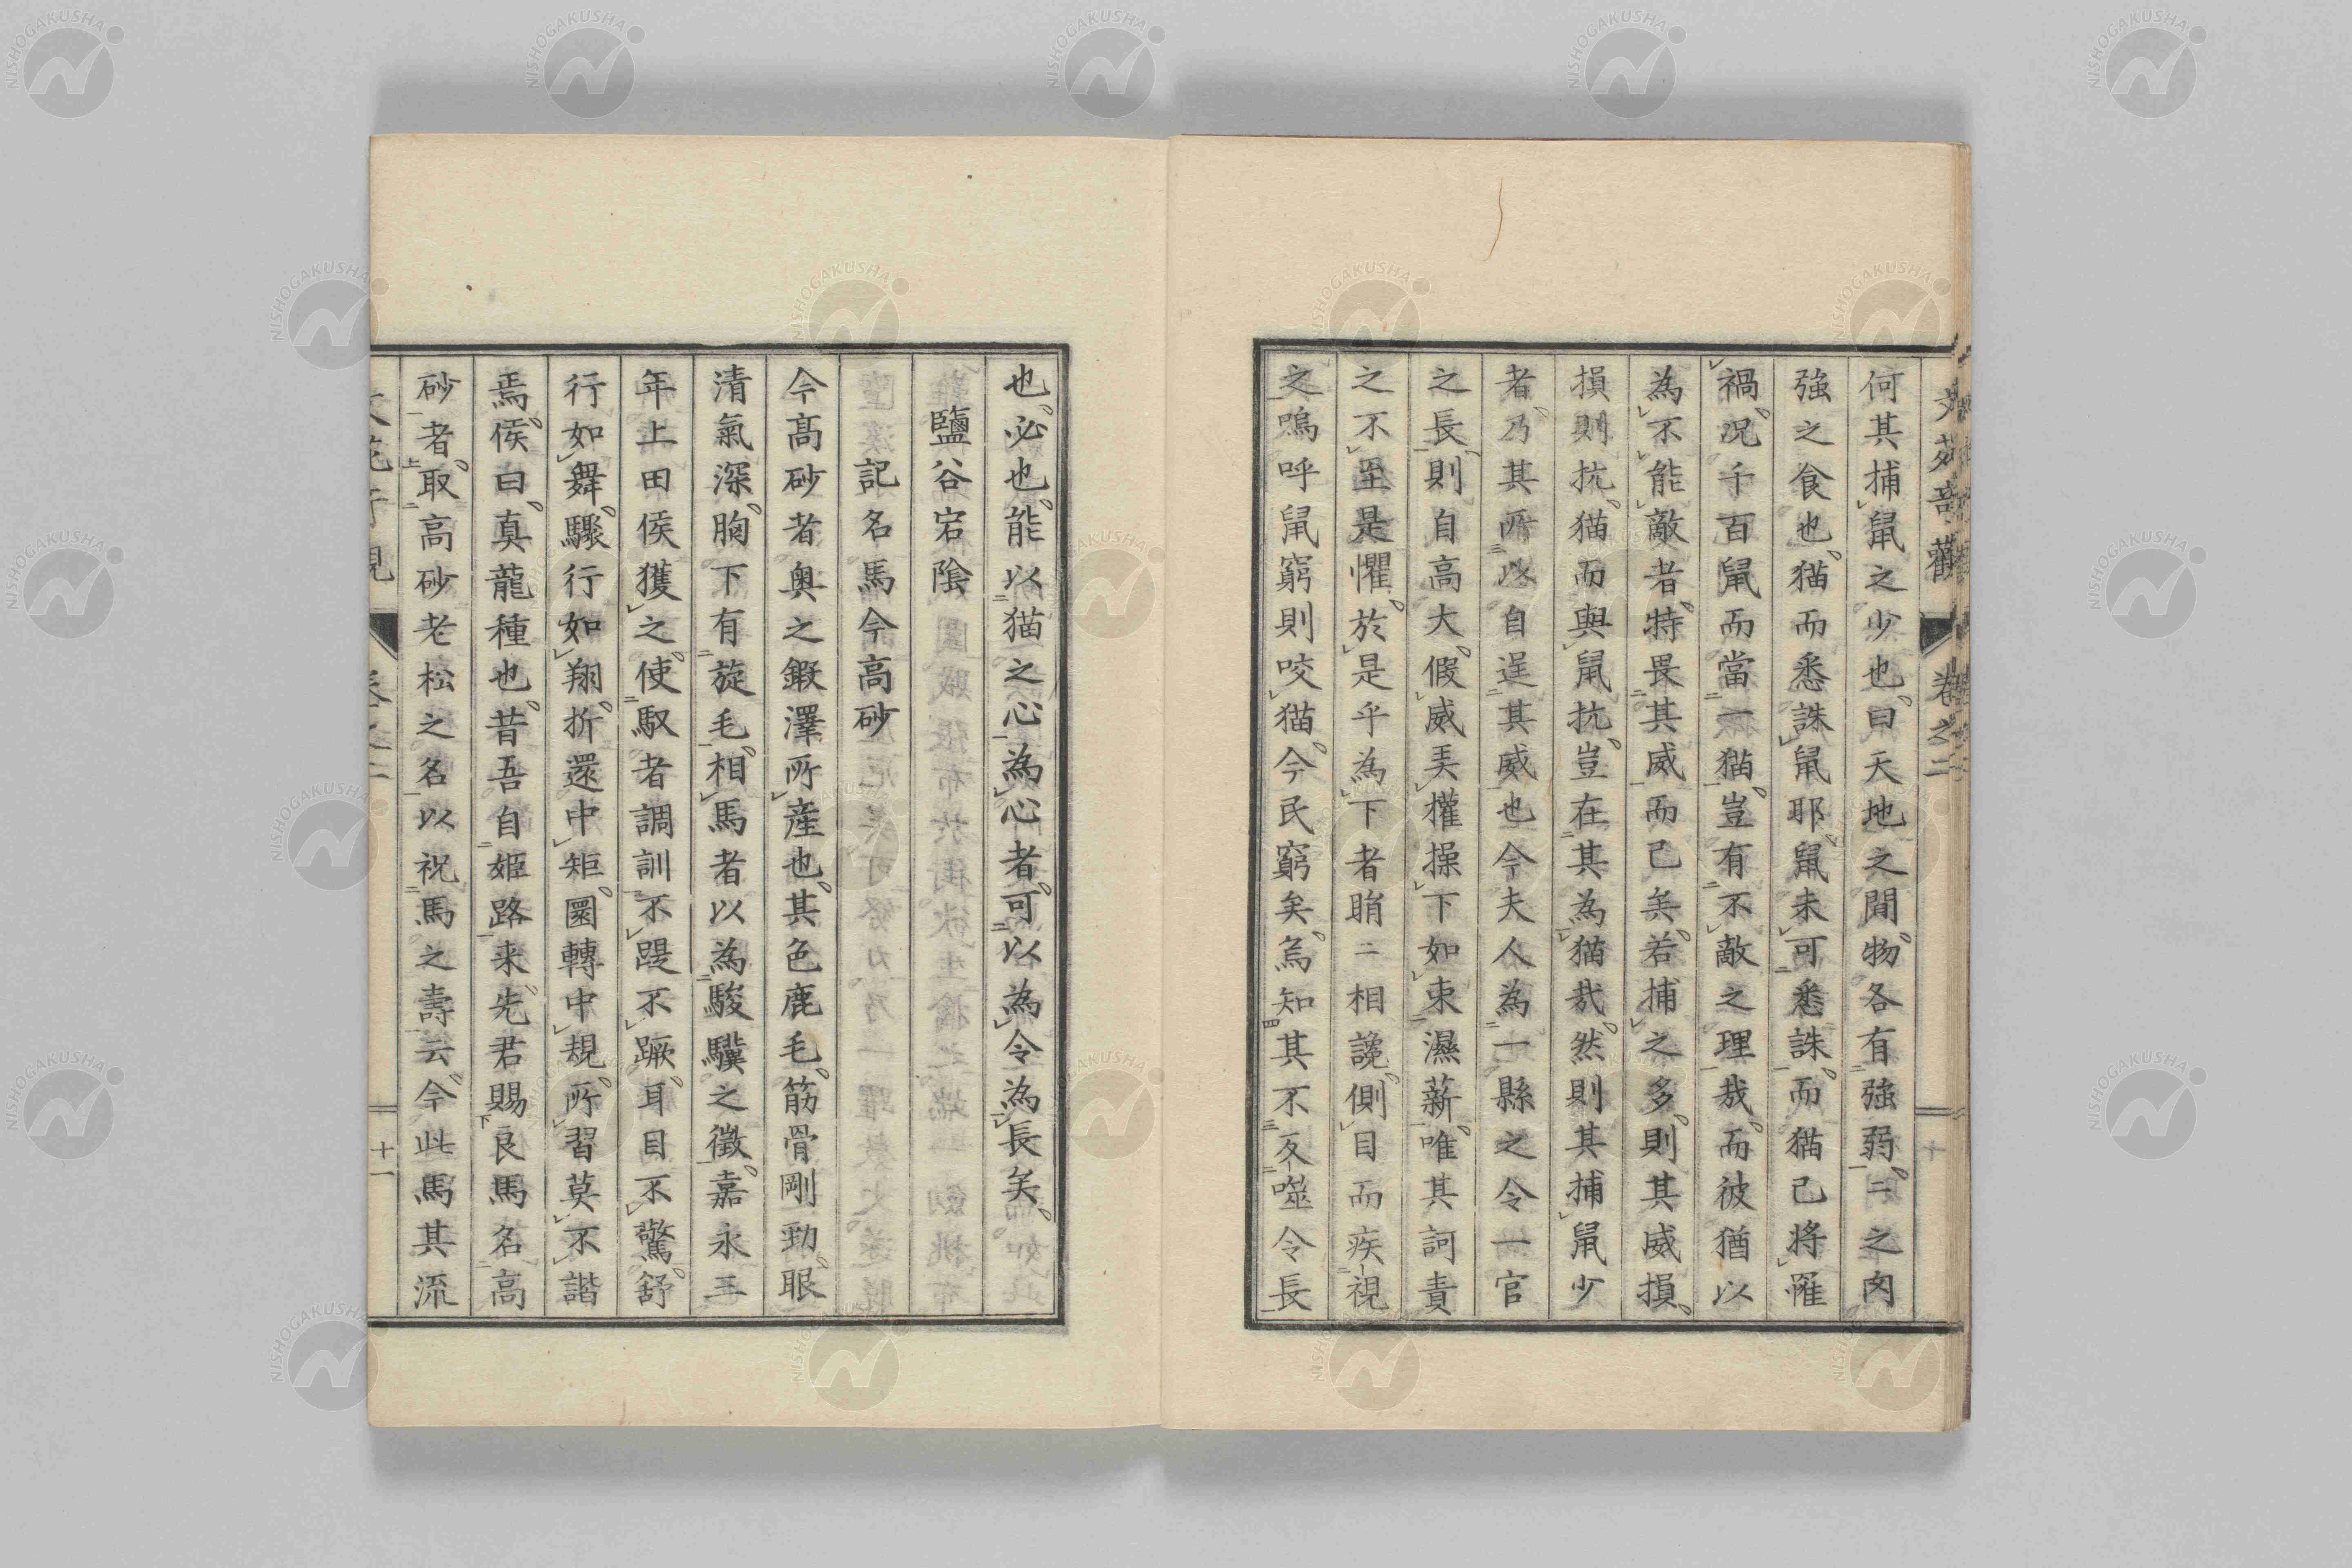 文苑奇觀 卷之二 十
何其捕鼠之少也曰天地之間物各有強弱二之肉
強之食也猫而悉誅鼠耶鼠未可悉誅而猫已將罹
禍况千百鼠而當一猫豈有不敵之理哉而彼猶以
為不能敵者特畏其威而已矣若捕之多則其威損
損則抗猫而與鼠抗豈在其為猫哉然則其捕鼠少
者乃其所以自逞其威也今夫人為一縣之令一官
之長則自高大假威弄權操下如束濕薪唯其訶責
之不至是懼於是乎為下者睊二相讒側目而疾視
之嗚呼鼠窮則咬猫今民窮矣焉知其不反噬令長
也必也能以猫之心為心者可以為令為長矣
鹽谷宕陰
記名馬今高砂
今高砂者奥之鍜澤所産也其色鹿毛筋骨剛勁眼
清氣深胸下有旋毛相馬者以為駿驥之徵嘉永三
年上田侯獲之使馭者調訓不踶不蹶耳目不驚舒
行如舞驟行如翔折還中矩圜轉中規所習莫不諧
焉侯曰真龍種也昔吾自姫路来先君賜良馬名高
砂者取高砂老松之名以祝馬之壽云今此馬其流
卷之二 十一
NISHOGAKUSHA